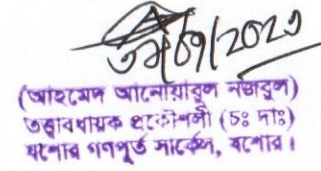 ০৯/২০২৩
(আহমেদ আনোয়ারুল নজরুল)
তত্ত্বাবধায়ক প্রকৌশলী (চঃ দাঃ)
যশোর গণপূর্ত সার্কেল, যশোর।